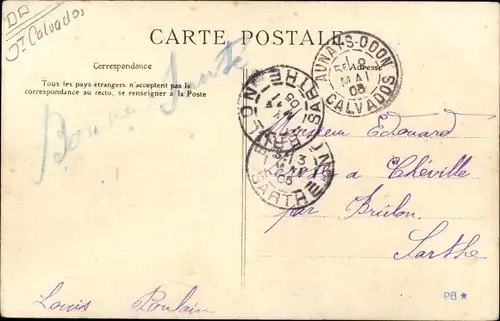 DA
Calvados
CARTE POSTALE
Correspondance
Adresse
Tous les pays étrangers n'acceptent pas la
correspondance au recto, se renseigner à la Poste
Bonne Santé
AUNAY-S-ODON
MAI
05
CALVADOS
BRÛLON
SARTHE
05
BRÛLON
3
MAI
05
SARTHE
Monsieur Edouard
à Chéville
par Brûlon
Sarthe
Louis Poulain
PB ★